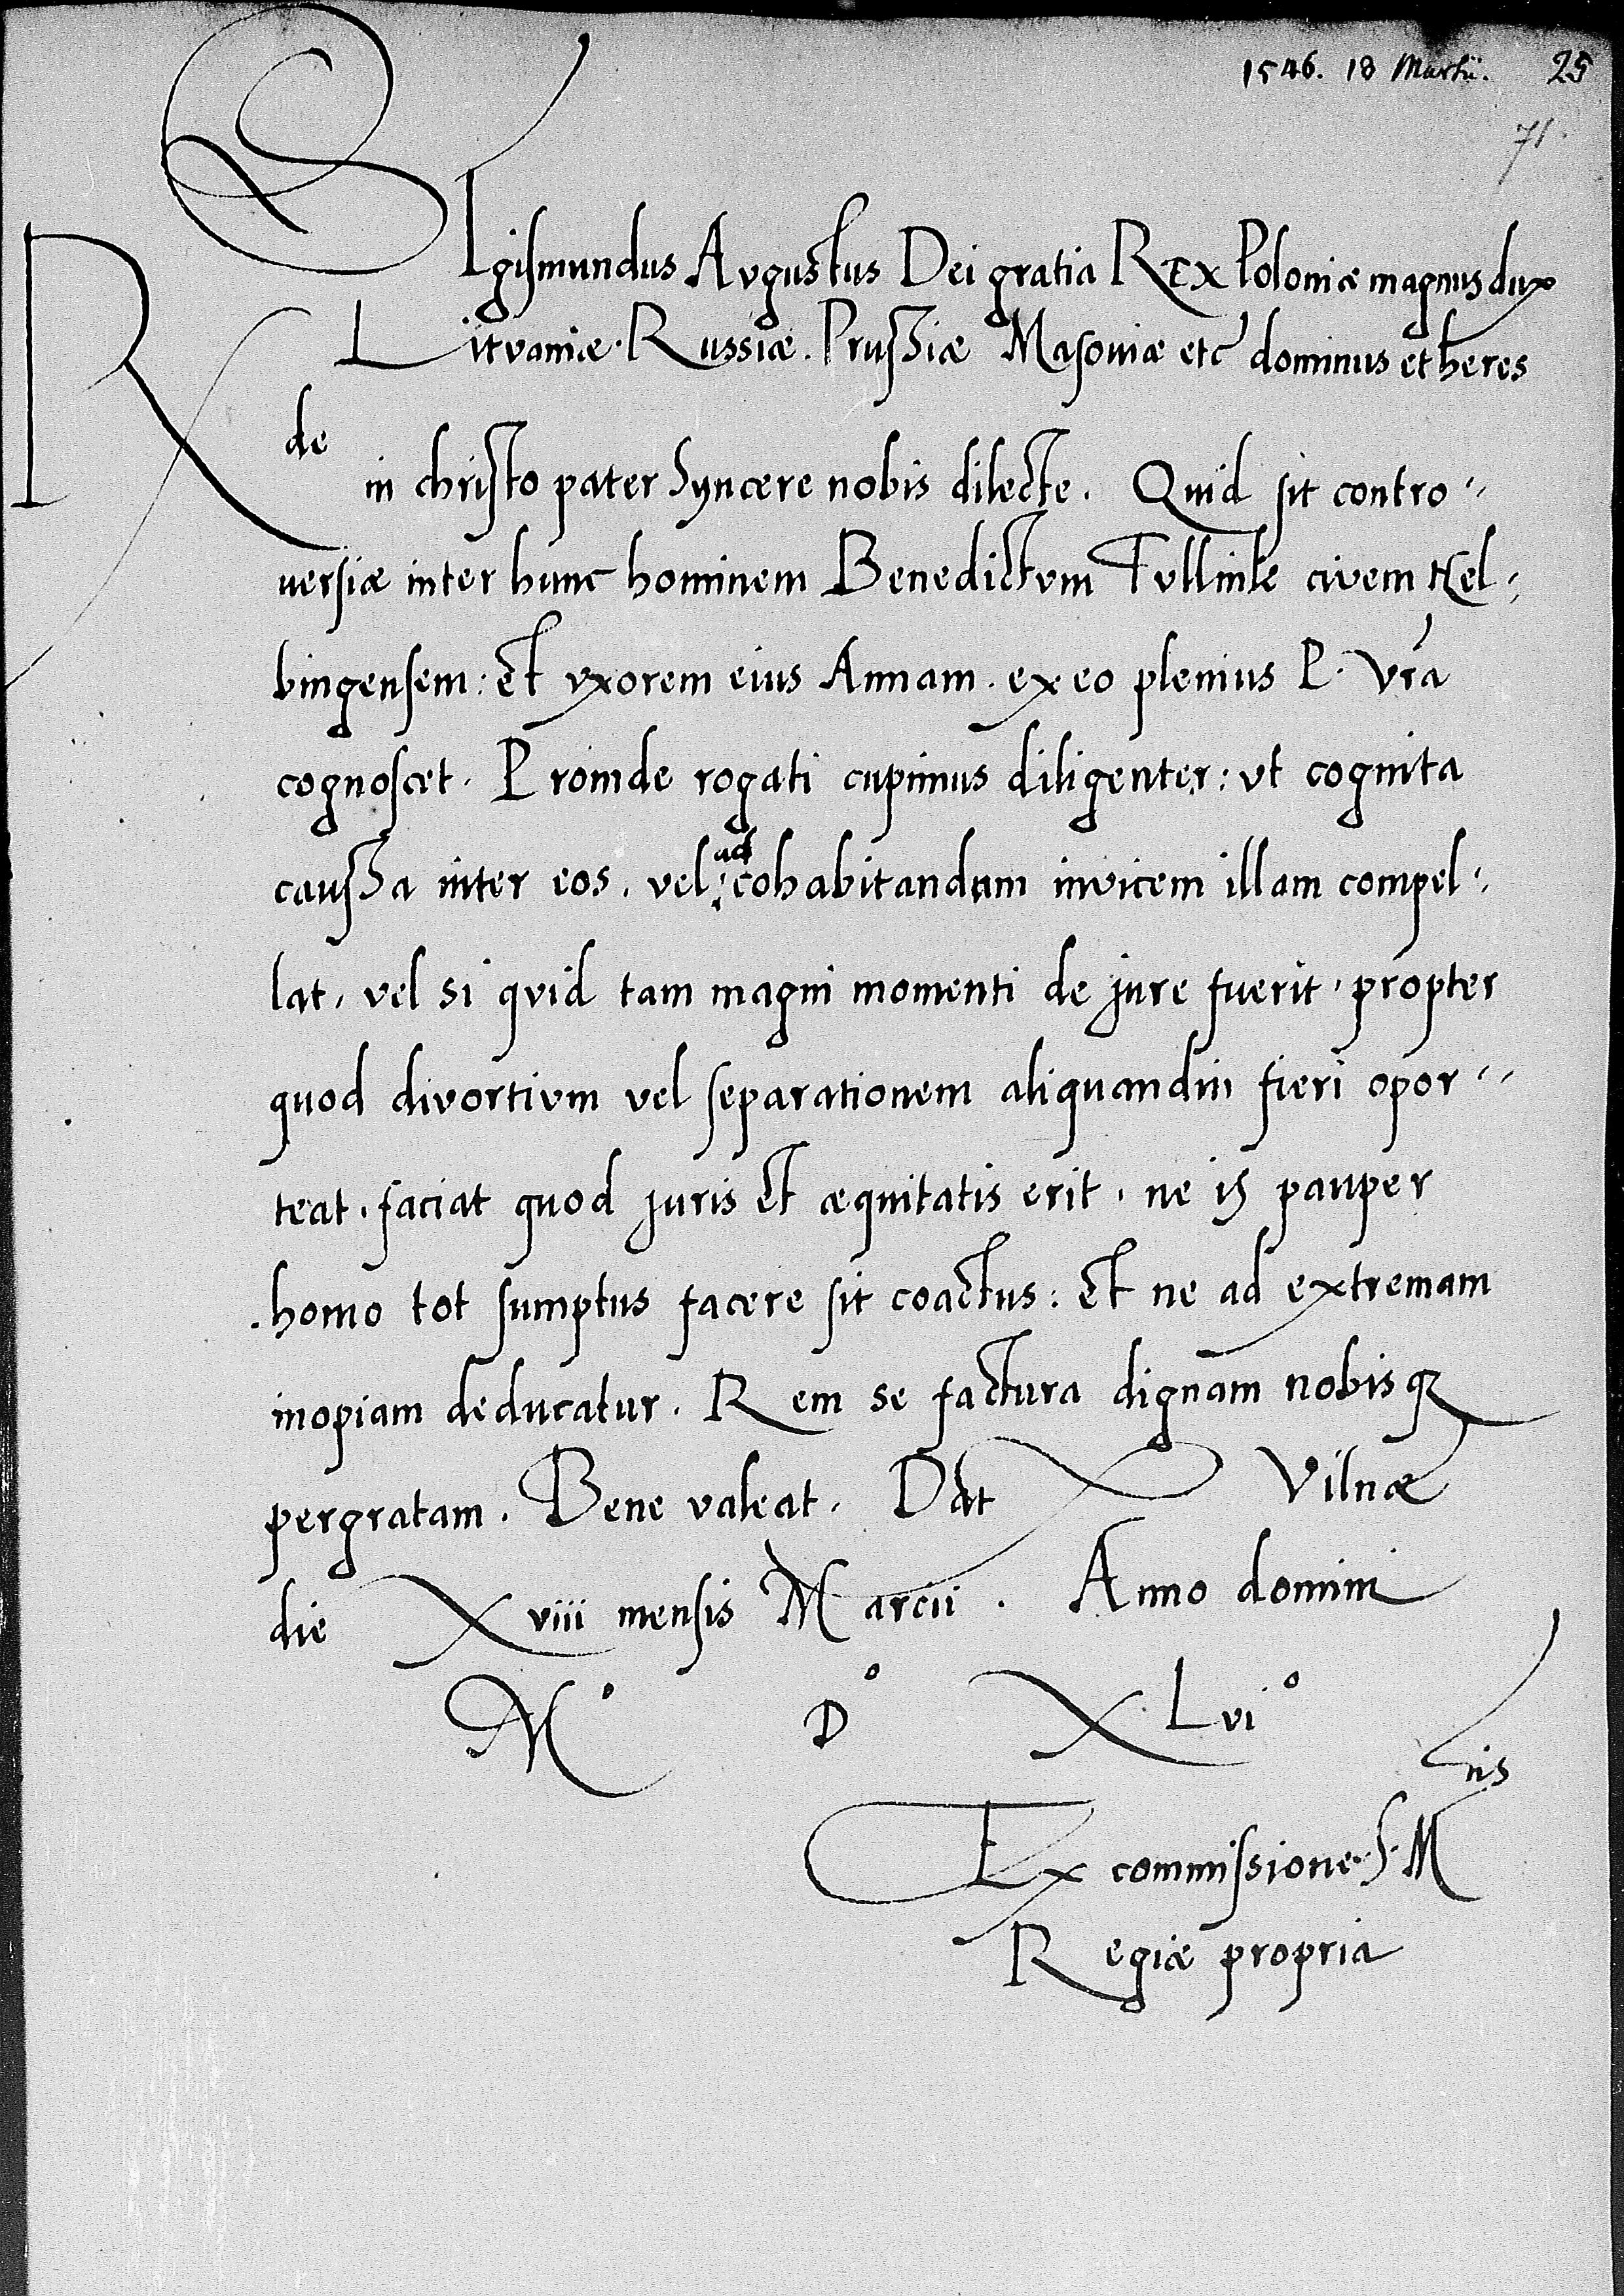 1546. 18 Martii. 25
71.
SIgismundus Avgustus Dei gratia REx Poloniæ magnus dux
Litvaniæ. Russiæ. Prussiæ Masoviæ etc dominus et heres
Rde in christo pater syncere nobis dilecte. Quid sit contro-
uersiæ inter hunc hominem Benedictvm Tvllinke civem Hel-
bingensem: et vxorem eius Annam. ex eo plenius P. Vra
cognoscet. Proinde rogati cupimus diligenter: vt cognita
caussa inter eos. vel ad cohabitandum invicem illam compel-
lat, vel si qvid tam magni momenti de jure fuerit, propter
quod divortivm vel separationem aliquandiu fieri opor-
teat, faciat quod juris et æquitatis erit, ne is pauper
homo tot sumptus facere sit coactus: et ne ad extremam
inopiam deducatur. Rem se factura dignam nobisq
pergratam. Bene valeat. Dat Vilnæ
die Xviii mensis Marcii. Anno domini
Mo Do XLvio
Ex commissione. S. Mtis
Regiæ propria